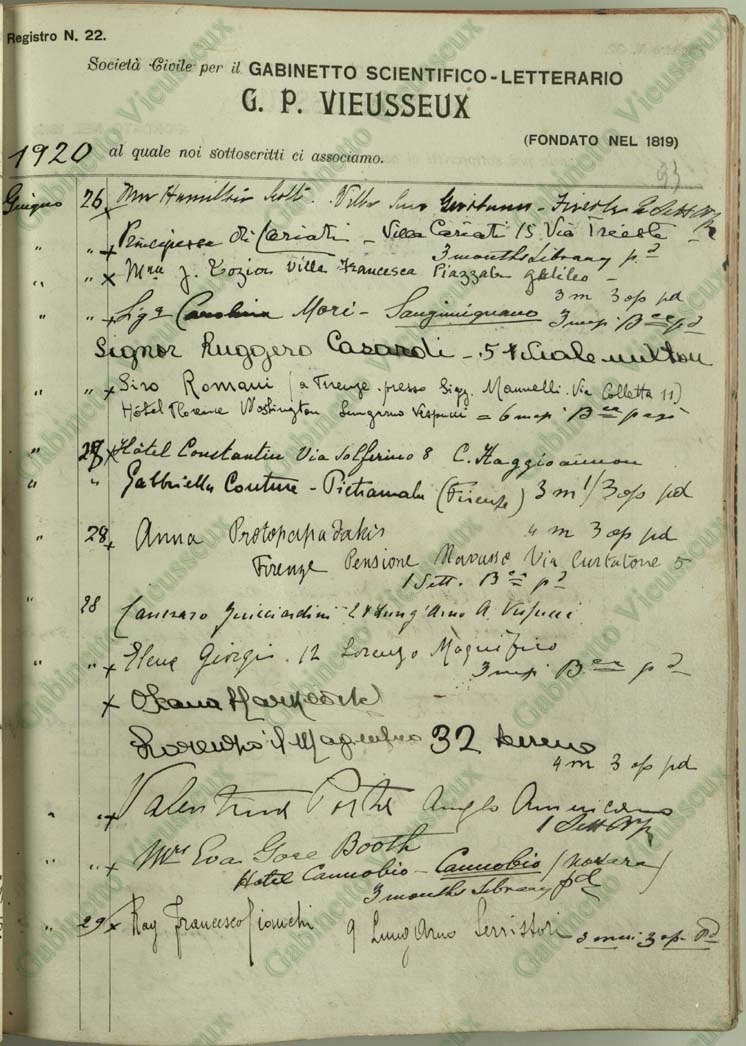 Registro N. 22.
Società Civile per il GABINETTO SCIENTIFICO-LETTERARIO
G. P. VIEUSSEUX
(FONDATO NEL 1819)
1920 al quale noi sottoscritti ci associamo.
93
Giugno 26 Hamilton Villa San
" " x Principessa di Cariati - Villa Cariati 15 Via Trieste
3 months Library pd
" " x J. Villa Francesca Piazzale Galileo -
3 m 3 op pd
" " x Sigra Carolina Mori - Sangimignano 3 mesi Bce pd
Signor Ruggero Casardi - 5 Viale Milton
" " x Siro Romani (a Firenze presso Sigg. Mannelli. Via Colletta 11)
Hôtel Florence Washington Lungarno Vespucci = 6 mesi
" 27 x Hôtel Constantin Via Solferino 8 C.
" " Gabbriella - Pietramala (Firenze) 3 m 3 op pd
" 28 x Anna Protopapadakis 4 m 3 op pd
Firenze Pensione Via Curtatone 5
1 Sett. Bce pd
" 28 Guicciardini Lung'Arno A. Vespucci
" " x Elena Giorgis. 12 Lorenzo Magnifico
3 mesi Bce pd
x
Lorenzo il Magnifico 32 terreno
4 m 3 op pd
" x Valentina Anglo Americano
1 Sett
" " x Mrs Eva Gore Booth
Hotel Cannobio - Cannobio (Novara)
3 months Library pd
" 29 x Ray Francesco 9 Lung Arno Serristori 3 mesi 3 op. Pd
Gabinetto Vieusseux